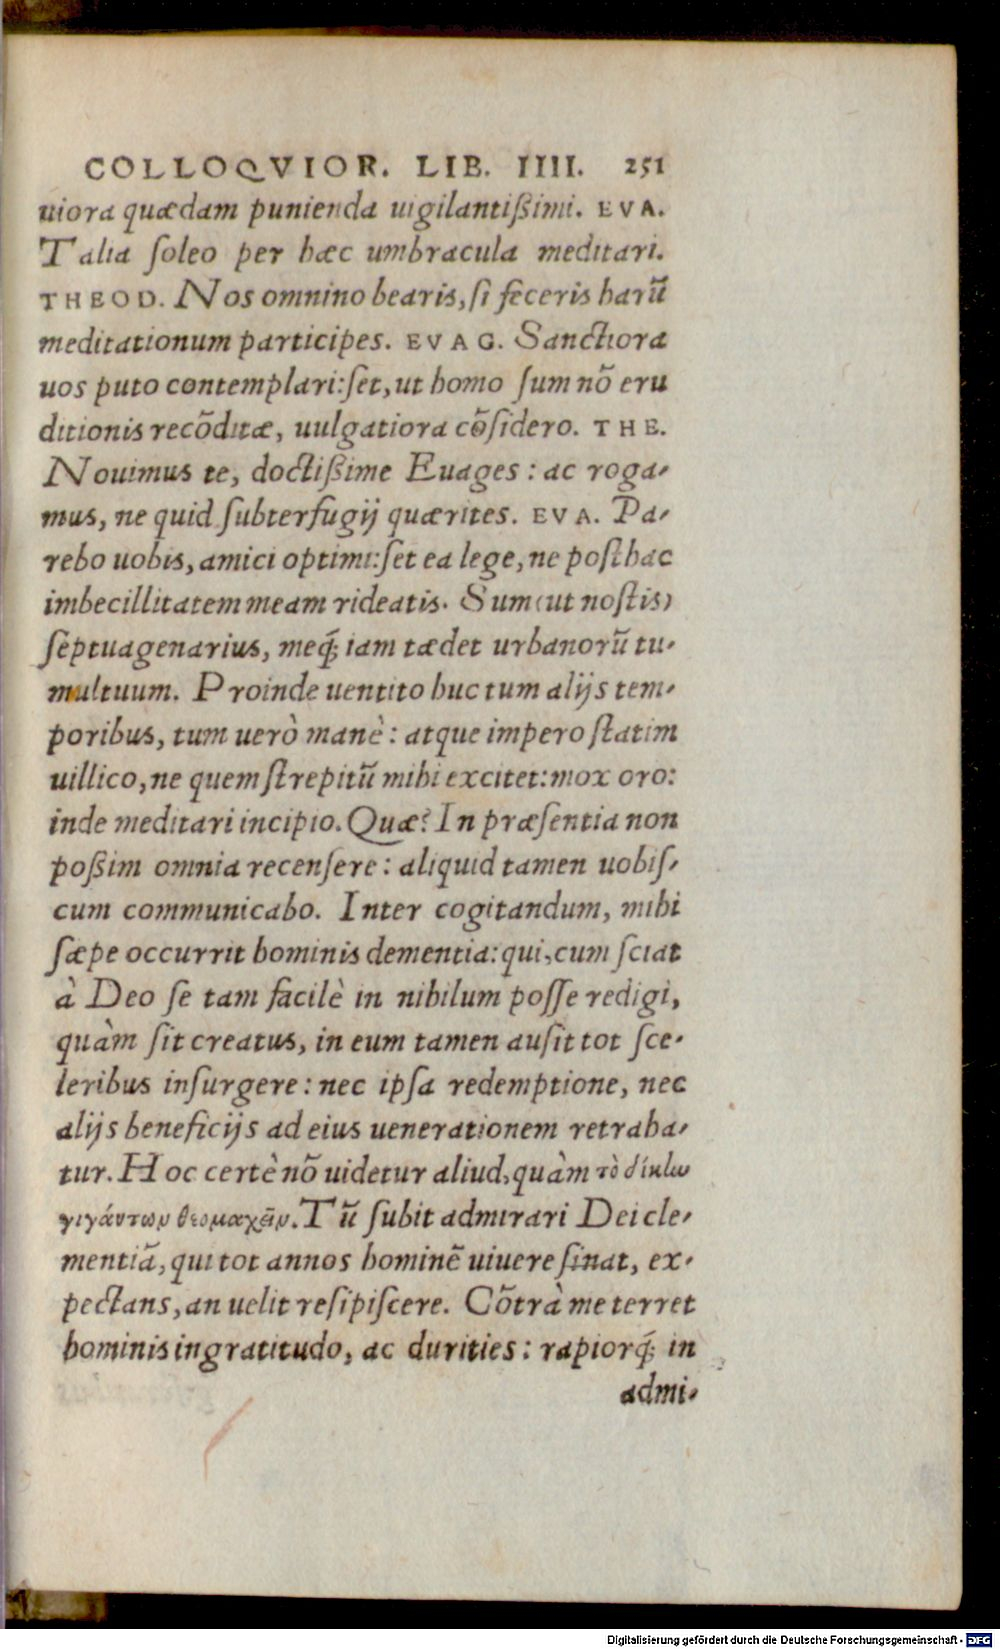 COLLOQVIOR. LIB. IIII. 251
uiora quædam punienda uigilantißimi. EVA.
Talia ſoleo per hæc umbracula meditari.
THEOD. Nos omnino bearis, ſi feceris harũ
meditationum participes. EVAG. Sanctiora
uos puto contemplari: ſet, ut homo ſum nõ eru
ditionis recõditæ, uulgatiora cõſidero. THE.
Nouimus te, doctißime Euages: ac roga-
mus, ne quid ſubterfugij quærites. EVA. Pa-
rebo uobis, amici optimi: ſet ea lege, ne poſthac
imbecillitatem meam rideatis. Sum (ut noſtis)
ſeptuagenarius, meq́; iam tædet urbanorũ tu-
multuum. Proinde uentito huc tum alijs tem-
poribus, tum uerò manè: atque impero ſtatim
uillico, ne quem ſtrepitũ mihi excitet: mox oro:
inde meditari incipio. Quæ? In præſentia non
poßim omnia recenſere: aliquid tamen uobiſ-
cum communicabo. Inter cogitandum, mihi
ſæpe occurrit hominis dementia: qui, cum ſciat
à Deo ſe tam facilè in nihilum poſſe redigi,
quàm ſit creatus, in eum tamen auſit tot ſce-
leribus inſurgere: nec ipſa redemptione, nec
alijs beneficijs ad eius uenerationem retraha-
tur. Hoc certè nõ uidetur aliud, quàm τὸ δίκην
γιγάντων θεομαχεῖν. Tũ ſubit admirari Dei cle-
mentiã, qui tot annos hominẽ uiuere ſinat, ex-
pectans, an uelit reſipiſcere. Cõtrà me terret
hominis ingratitudo, ac durities: rapiorq́; in
admi-
Digitalisierung gefördert durch die Deutsche Forschungsgemeinschaft - DFG